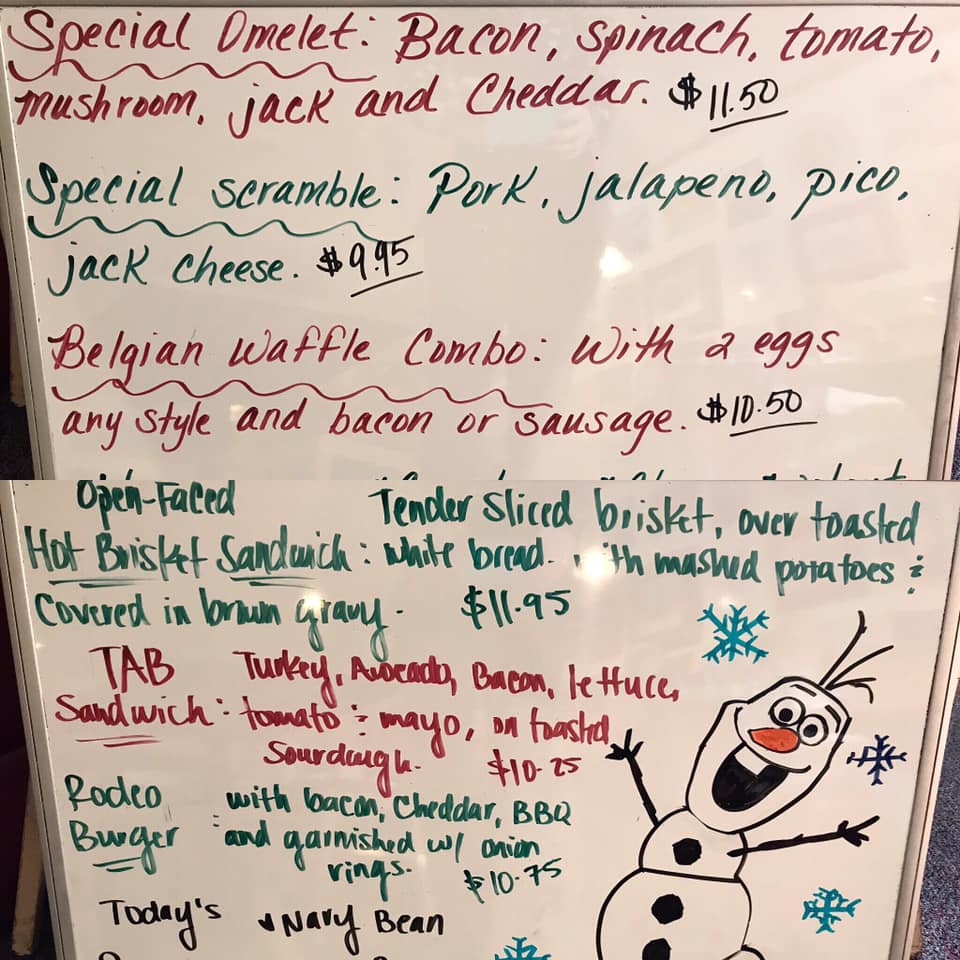 Special Omelet: Bacon, spinach, tomato,
mushroom, jack and Cheddar. $11.50
Special scramble: Pork, jalapeno, pico,
jack cheese. $9.95
Belgian waffle Combo: With 2 eggs
any style and bacon or sausage. $10.50
Open-Faced Tender Sliced brisket, over toasted
Hot Brisket Sandwich: white bread. with mashed potatoes &
Covered in brown gravy. $11.95
TAB Turkey, Avocado, Bacon, lettuce,
Sandwich: tomato & mayo, on toasted
Sourdough. $10.25
Rodeo with bacon, Cheddar, BBQ
Burger: and garnished w/ onion
rings. $10.75
Today's Navy Bean